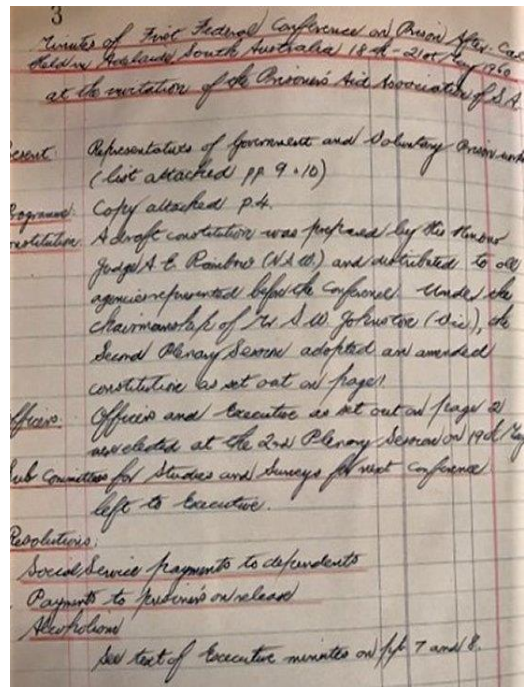 3
Minutes of First Federal Conference on Prison After-Ca
Held in Adelaide South Australia 18th - 21st May 1960
at the invitation of the Prisoners Aid Association of S.A
esent: Representatives of Government and Voluntary Prison
(list attached pp. 9 + 10)
rogramme: Copy attached p. 4.
nstitution: A draft constitution was prepared by His Honour
Judge A. E. Rainbow (N.S.W.) and distributed to all
agencies represented before the Conference. Under the
chairmanship of Mr S.W. Johnston (Vic.), the
Second Plenary Session adopted an amended
constitution as set out on page 1.
fficers: Officers and Executive as set out on page 2
were elected at the 2nd Plenary Session on 19th May
ub Committees for Studies and Surveys for next conference
left to Executive.
Resolutions:
Social Service payments to dependents
Payments to prisoners on release
Alcoholism
See text of Executive minutes on pp 7 and 8.